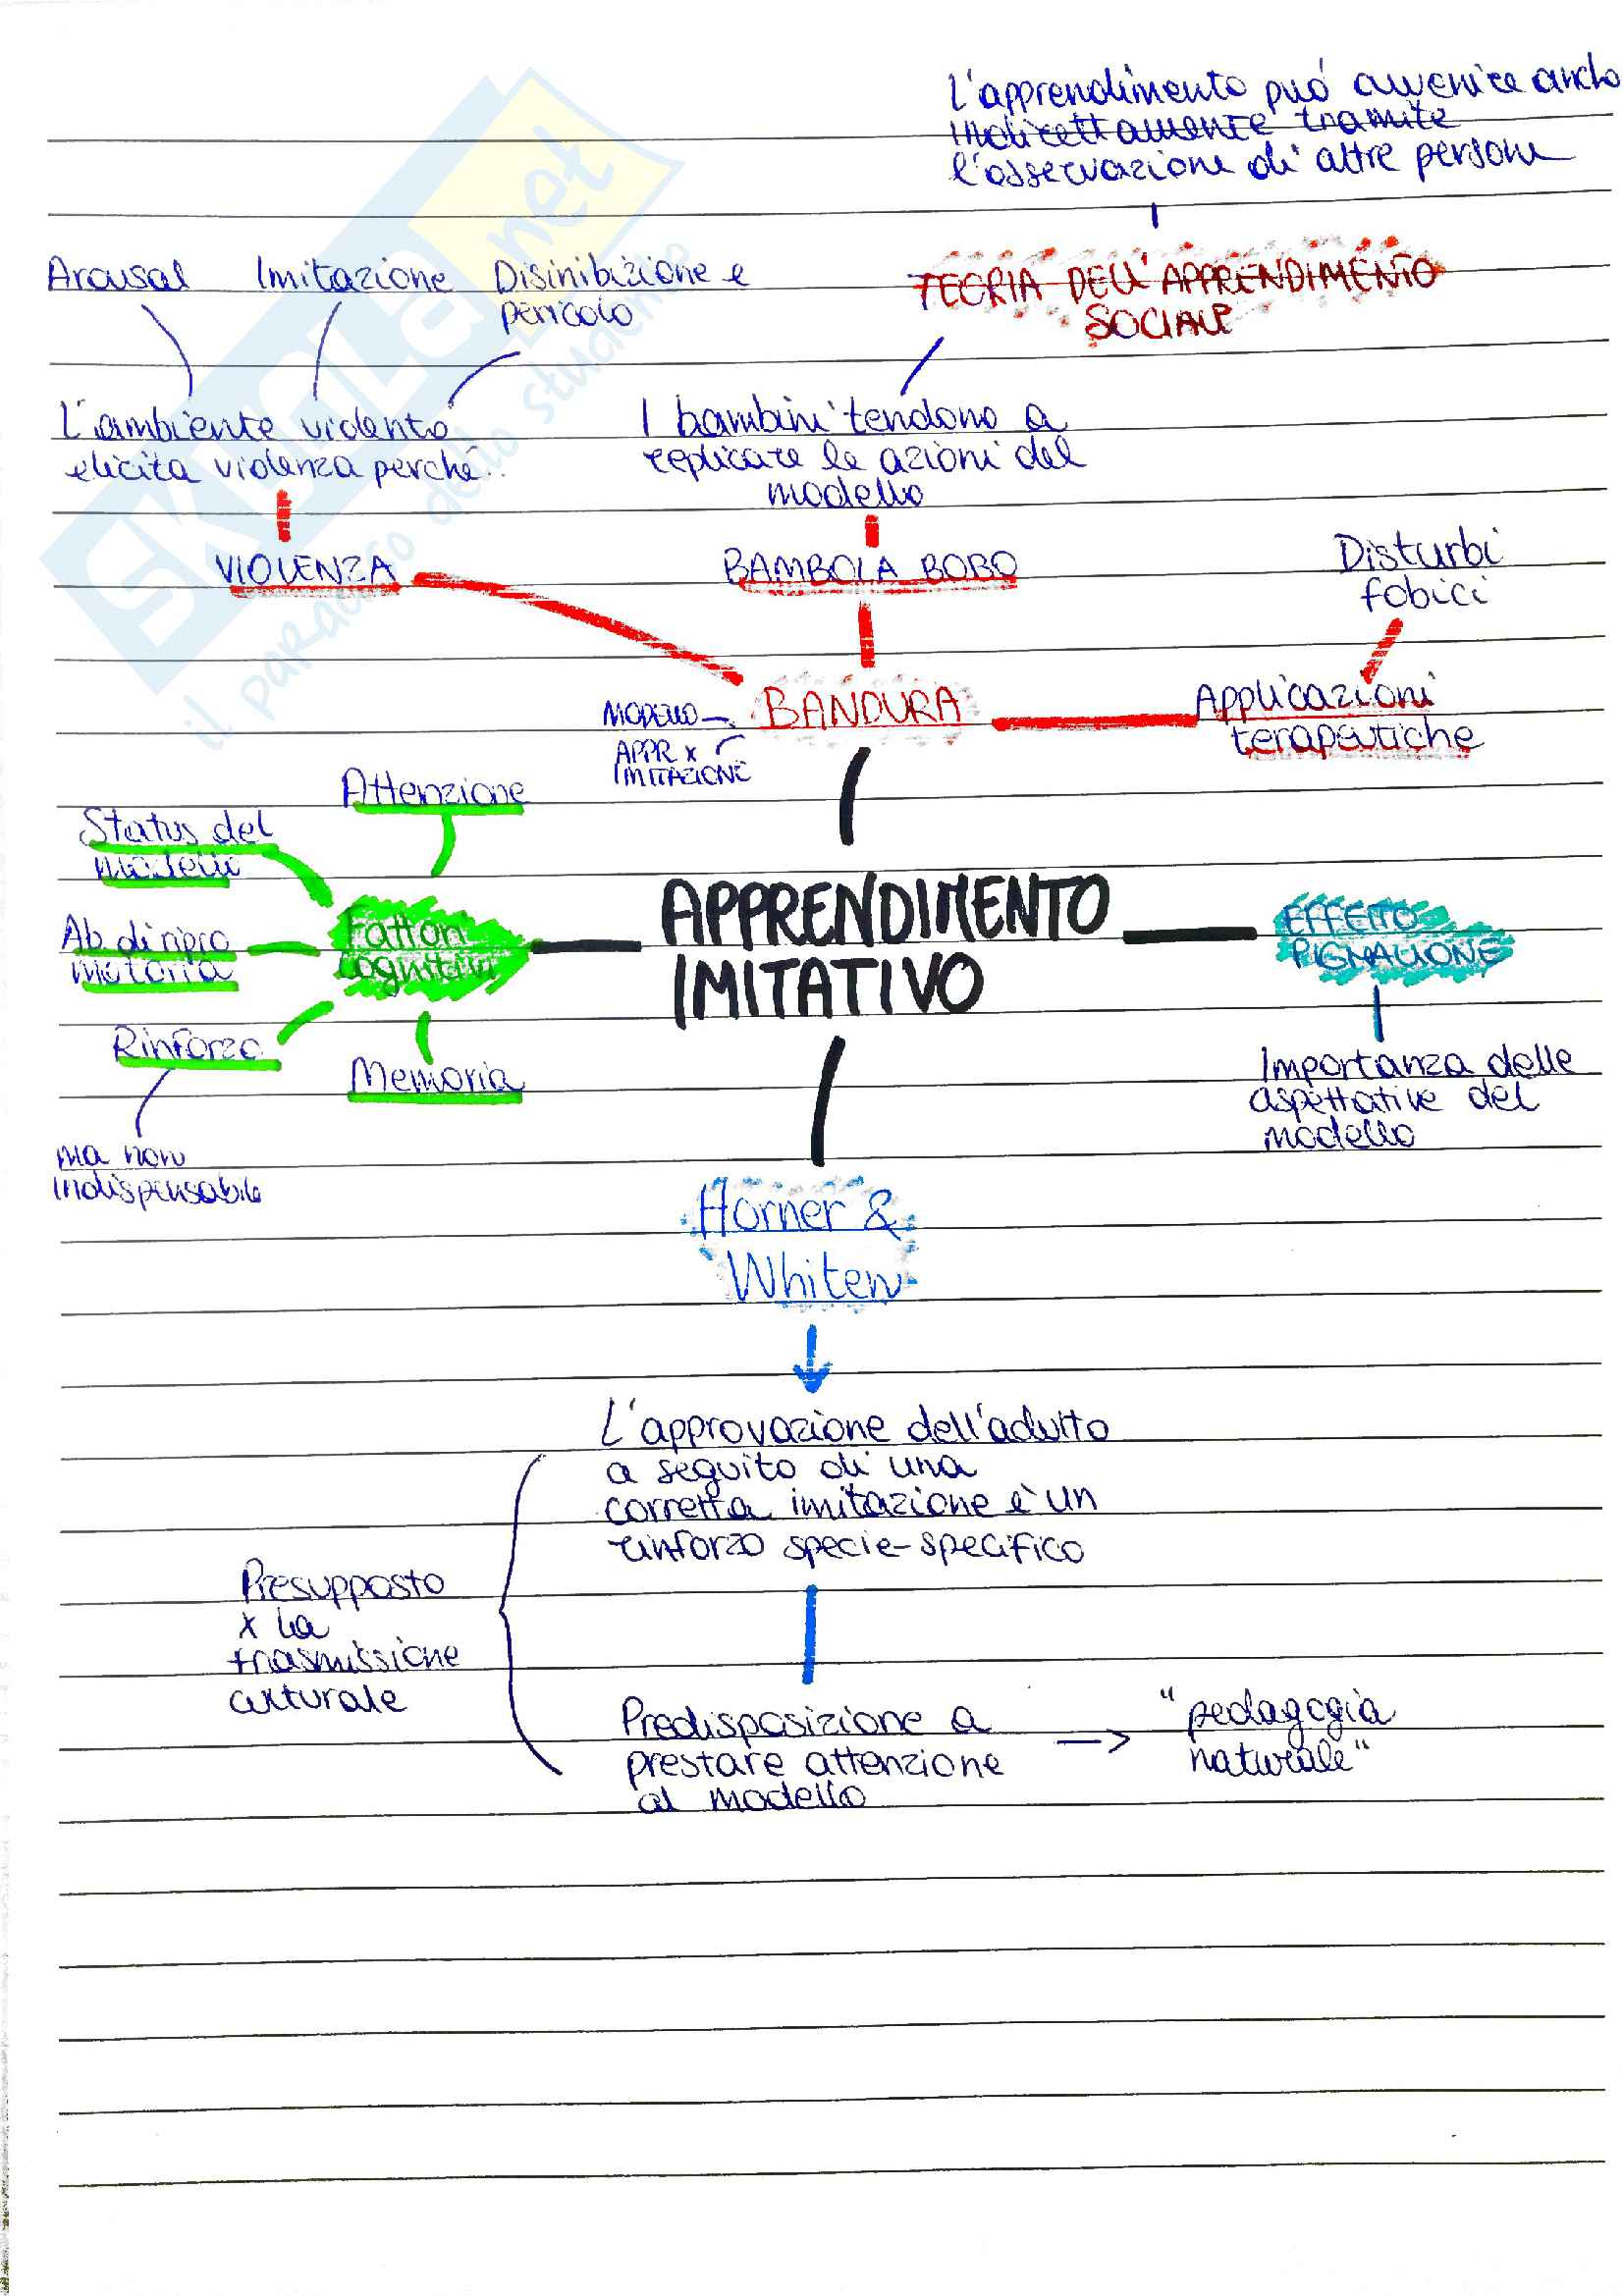 L'apprendimento può avvenire anche
indirettamente tramite
l'osservazione di altre persone
TEORIA DELL'APPRENDIMENTO
SOCIALE
Arousal
Imitazione
Disinibizione e
pericolo
L'ambiente violento
elicita violenza perché..
I bambini tendono a
replicare le azioni del
modello
VIOLENZA
BAMBOLA BOBO
Disturbi
fobici
MODELLO
BANDURA
Applicazioni
terapeutiche
APPR x
IMITAZIONE
Attenzione
Status del
modello
Ab. di ripro
motoria
Fattori
cognitivi
APPRENDIMENTO
IMITATIVO
EFFETTO
PIGMALIONE
Rinforzo
Memoria
ma non
indispensabile
Importanza delle
aspettative del
modello
Horner &
Whiten
L'approvazione dell'adulto
a seguito di una
corretta imitazione è un
rinforzo specie-specifico
Presupposto
x la
trasmissione
culturale
Predisposizione a
prestare attenzione
al modello
"pedagogia
naturale"
SKUOLA.net
il paradiso dello studente